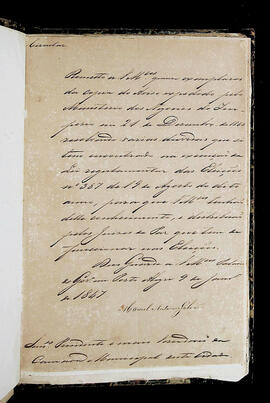 Circular
Remetto a V.Mces quinze exemplares
da copia do Aviso expedido pelo
Ministerio dos Negocios do Im-
perio em 21 de Dezembro de
resolvendo varias duvidas que se
tem encontrado na execução da
Lei regulamentar das Eleições
nº 387 de 19 de Agosto do dito
anno, para que V.Mces tenhão
delle conhecimento, e distribuão
pelos Juizes de Paz que tem de
funccionar nas Eleições.
Deos Guarde a V.Mces Palacio
do Govº em Porto Alegre 9 de Janrº
de 1847
Manoel Antonio Galvão
Snrs Presidente e mais Vereadores da
Camara Municipal desta Cidade